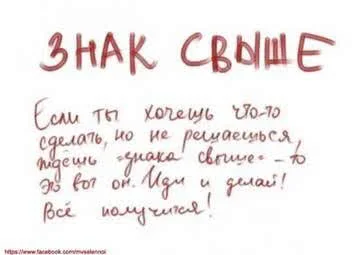 ЗНАК СВЫШЕ
Если ты хочешь что-то
сделать, но не решаешься,
ждёшь "знака свыше" - то
это вот он. Иди и делай!
Всё получится!
https://www.facebook.com/mvselennoi